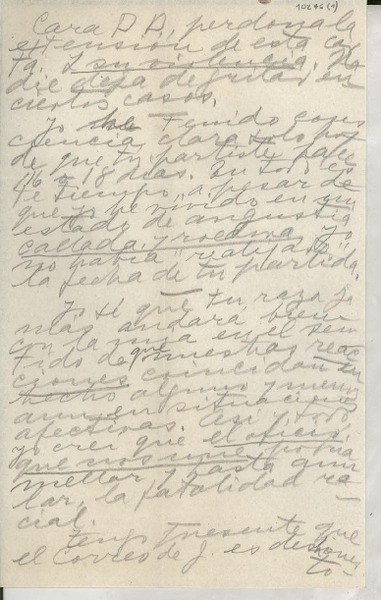 10246 (1)
Cara D D., perdona la
extensión de esta car
ta. Y su violencia. Na
die deja de gritar en
ciertos casos.
Yo he tenido cons
ciencia clara solo hoy
de que tu partiste hace
16 o 18 días. En todo es
te tiempo, a pesar de
que he vivido en un
estado de angustia
callada y roedora, yo
no había "realizado"
la fecha de tu partida.
Yo sé que tu raza ja
mas andará bien
con la mía en el sen
tido de que nuestras reac
ciones coincidan en
hecho alguno y menos
aun en situaciones
afectivas. Así y todo
yo creí que el oficio
que nos une podría
mellar, y hasta anu
lar, la fatalidad ra-
cial.
Tengo presente que
el correo de J. es deshones
to-